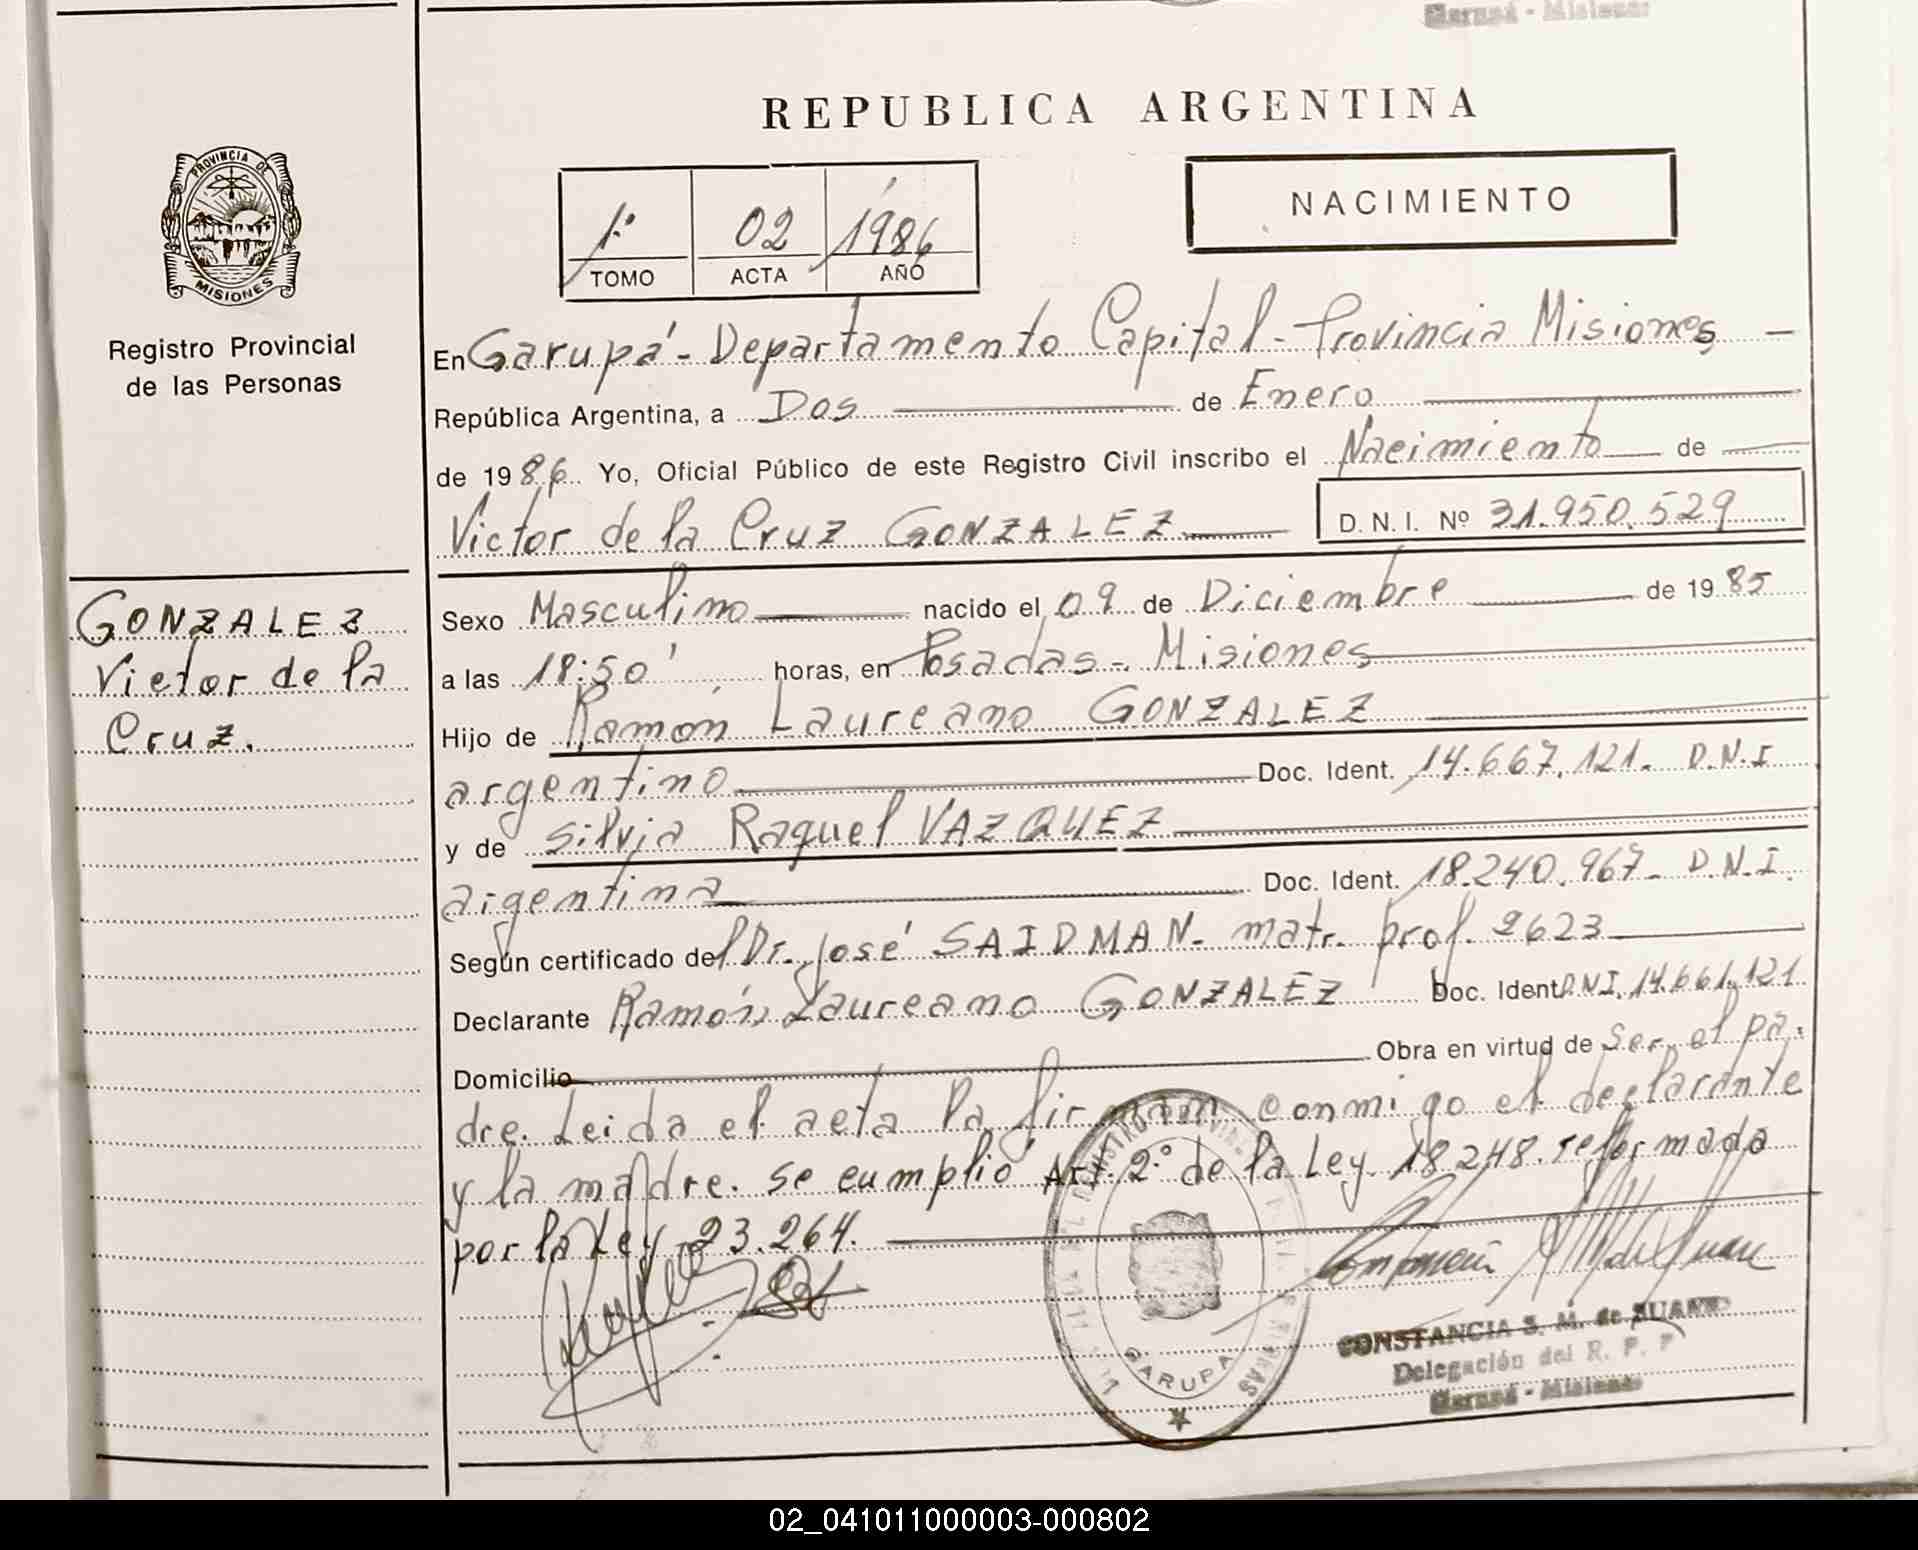 Garupá - Misiones
REPUBLICA ARGENTINA
PROVINCIA DE
MISIONES
Registro Provincial
de las Personas
1º 02 1986
TOMO ACTA AÑO
NACIMIENTO
En Garupá - Departamento Capital - Provincia Misiones -
República Argentina, a Dos de Enero
de 1986 Yo, Oficial Público de este Registro Civil inscribo el Nacimiento de
Victor de la Cruz GONZALEZ D.N.I. Nº 31.950.529
GONZALEZ
Victor de la
Cruz.
Sexo Masculino nacido el 09 de Diciembre de 1985
a las 18:50' horas, en Posadas - Misiones
Hijo de Ramón Laureano GONZALEZ
argentino Doc. Ident. 14.667.121- D.N.I
y de Silvia Raquel VAZQUEZ
argentina Doc. Ident. 18.240.967- D.N.I.
Según certificado del Dr. José SAIDMAN- matr. prof. 2623
Declarante Ramón Laureano GONZALEZ Doc. Ident. D.N.I. 14.661.121
Domicilio Obra en virtud de ser el pa.
dre. Leida el acta la firman conmigo el declarante
y la madre. se cumplió Art. 2º de la Ley 18248. reformada
por la Ley 23.264.
GARUPA
CONSTANCIA S. M. de SUAREZ
Delegación del R. P. P
Garupá - Misiones
02_041011000003-000802